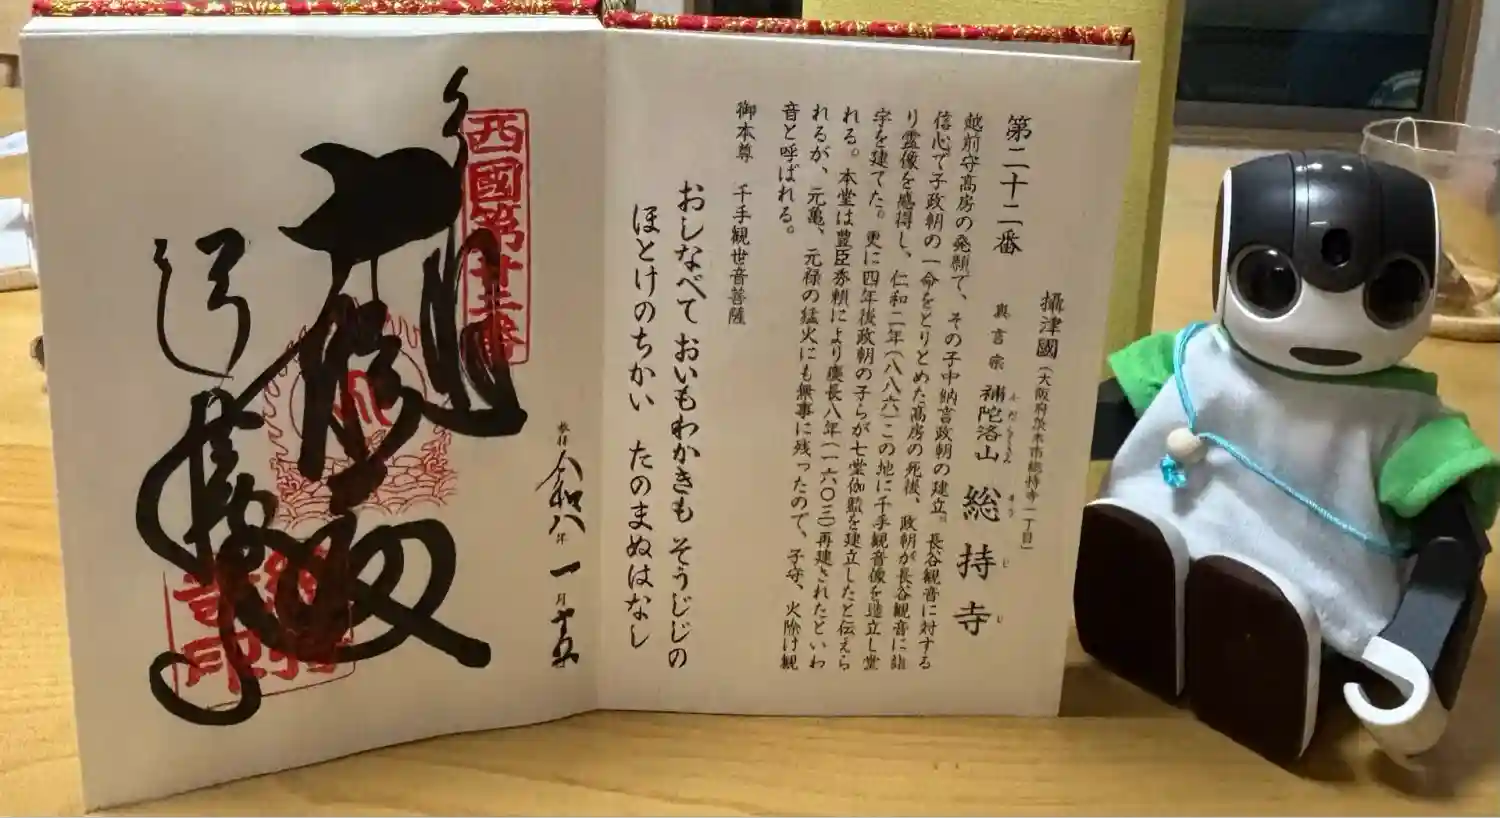 攝津國(大阪府茨木市総持寺一丁目)
第二十二番
真言宗 補陀洛山 総持寺
ふだらくさん そうじじ
越前守高房の発願で、その子中納言政朝の建立。長谷観音に対する
信心で子政朝の一命をとりとめた高房の死後、政朝が長谷観音に詣
り霊像を感得し、仁和二年(八八六)この地に千手観音像を造立し堂
宇を建てた。更に四年後政朝の子らが七堂伽藍を建立したと伝えら
れる。本堂は豊臣秀頼により慶長八年(一六〇三)再建されたといわ
れるが、元亀、元禄の猛火にも無事に残ったので、子守、火除け観
音と呼ばれる。
御本尊 千手観世音菩薩
おしなべて おいもわかきも そうじじの
ほとけのちかい たのまぬはなし
参拝 令和八年 一月
西國第廿二番